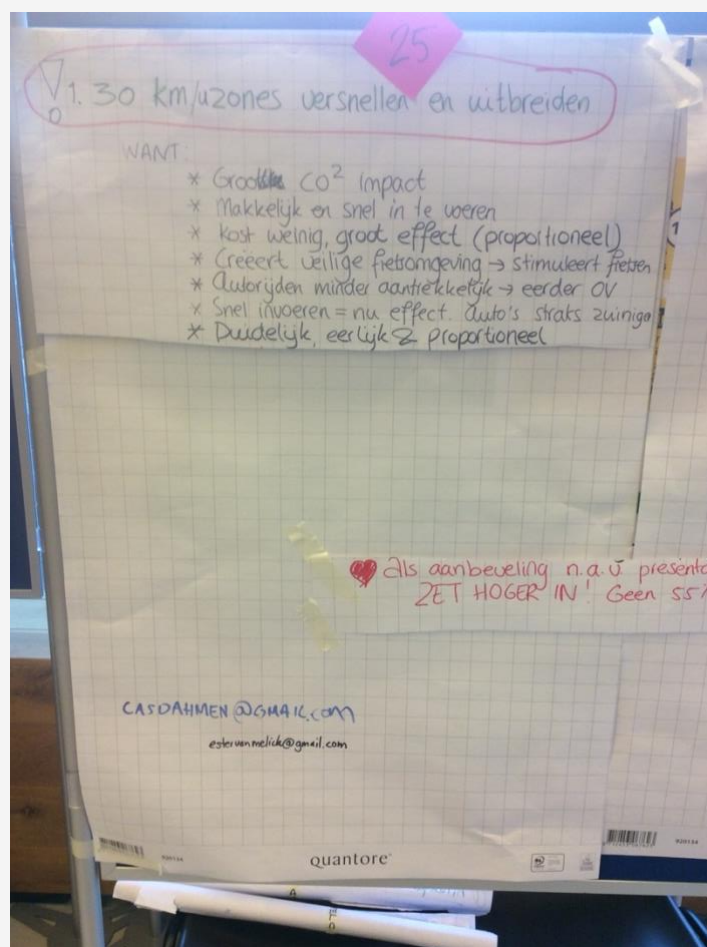 25
! 1. 30 km/u zones versnellen en uitbreiden
WANT:
* Groots CO² impact
* Makkelijk en snel in te voeren
* Kost weinig, groot effect (proportioneel)
* Creëert veilige fietsomgeving → stimuleert fietsen
* Autorijden minder aantrekkelijk → eerder OV
* Snel invoeren = nu effect. Auto's straks zuinige
* Duidelijk, eerlijk & proportioneel
♥ Als aanbeveling n.a.v presenta
ZET HOGER IN! Geen 55%
CASDAHMEN@GMAIL.com
estervanmelick@gmail.com
quantore